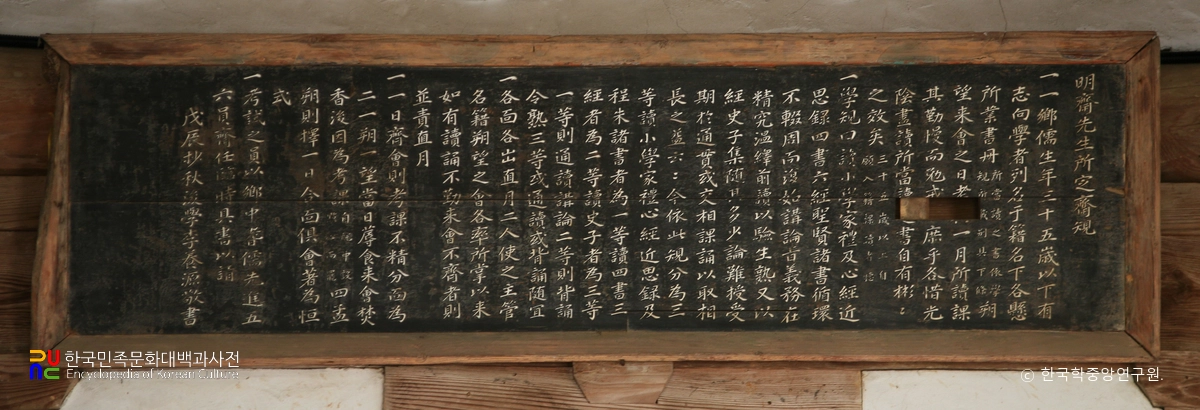 明齋先生所定齋規
一 鄕儒生年三十五歲以下有
志向學者列名于籍名下各懸
所業書冊 所當讀之書依學規而義列具下條 朔
望來會之日考 一月所讀課
其勤慢而勉戒 庶乎各惜光
陰盡讀所當讀 書自有彬彬
之效矣 願入 三十 歲以上自
一 學規曰讀小學家禮及心經近
思錄四書六經聖賢諸書循環
不輟周而復始講論音義務在
精究溫繹前讀以驗生熟又以
經史子集隨其多少論難授受
期於通貫或交相課誦以取相
長之益云云今依此規分爲三
等讀小學家禮心經近思錄及
程朱諸書者爲一等讀四書三
經者爲二等讀史子者爲三等
一等則通讀講論二等則背誦
令熟三等或通讀或背誦隨宜
一 各面各出直月二人使之主管
名籍朔望之會各率所掌以來
如有讀誦不勤來會不齊者則
並責直月
一 一日齊會則考課不精分面爲
二一朔一望當日蓐食來會焚
香後因爲考課 四孟
朔則擇一日令面俱會著爲恒
式
一 考試之員以鄕中 儒先進五
六員 任臨時具書以請
戊辰抄秋後學李泰淵敬書
한국민족문화대백과사전
Encyclopedia of Korean Culture
© 한국학중앙연구원.